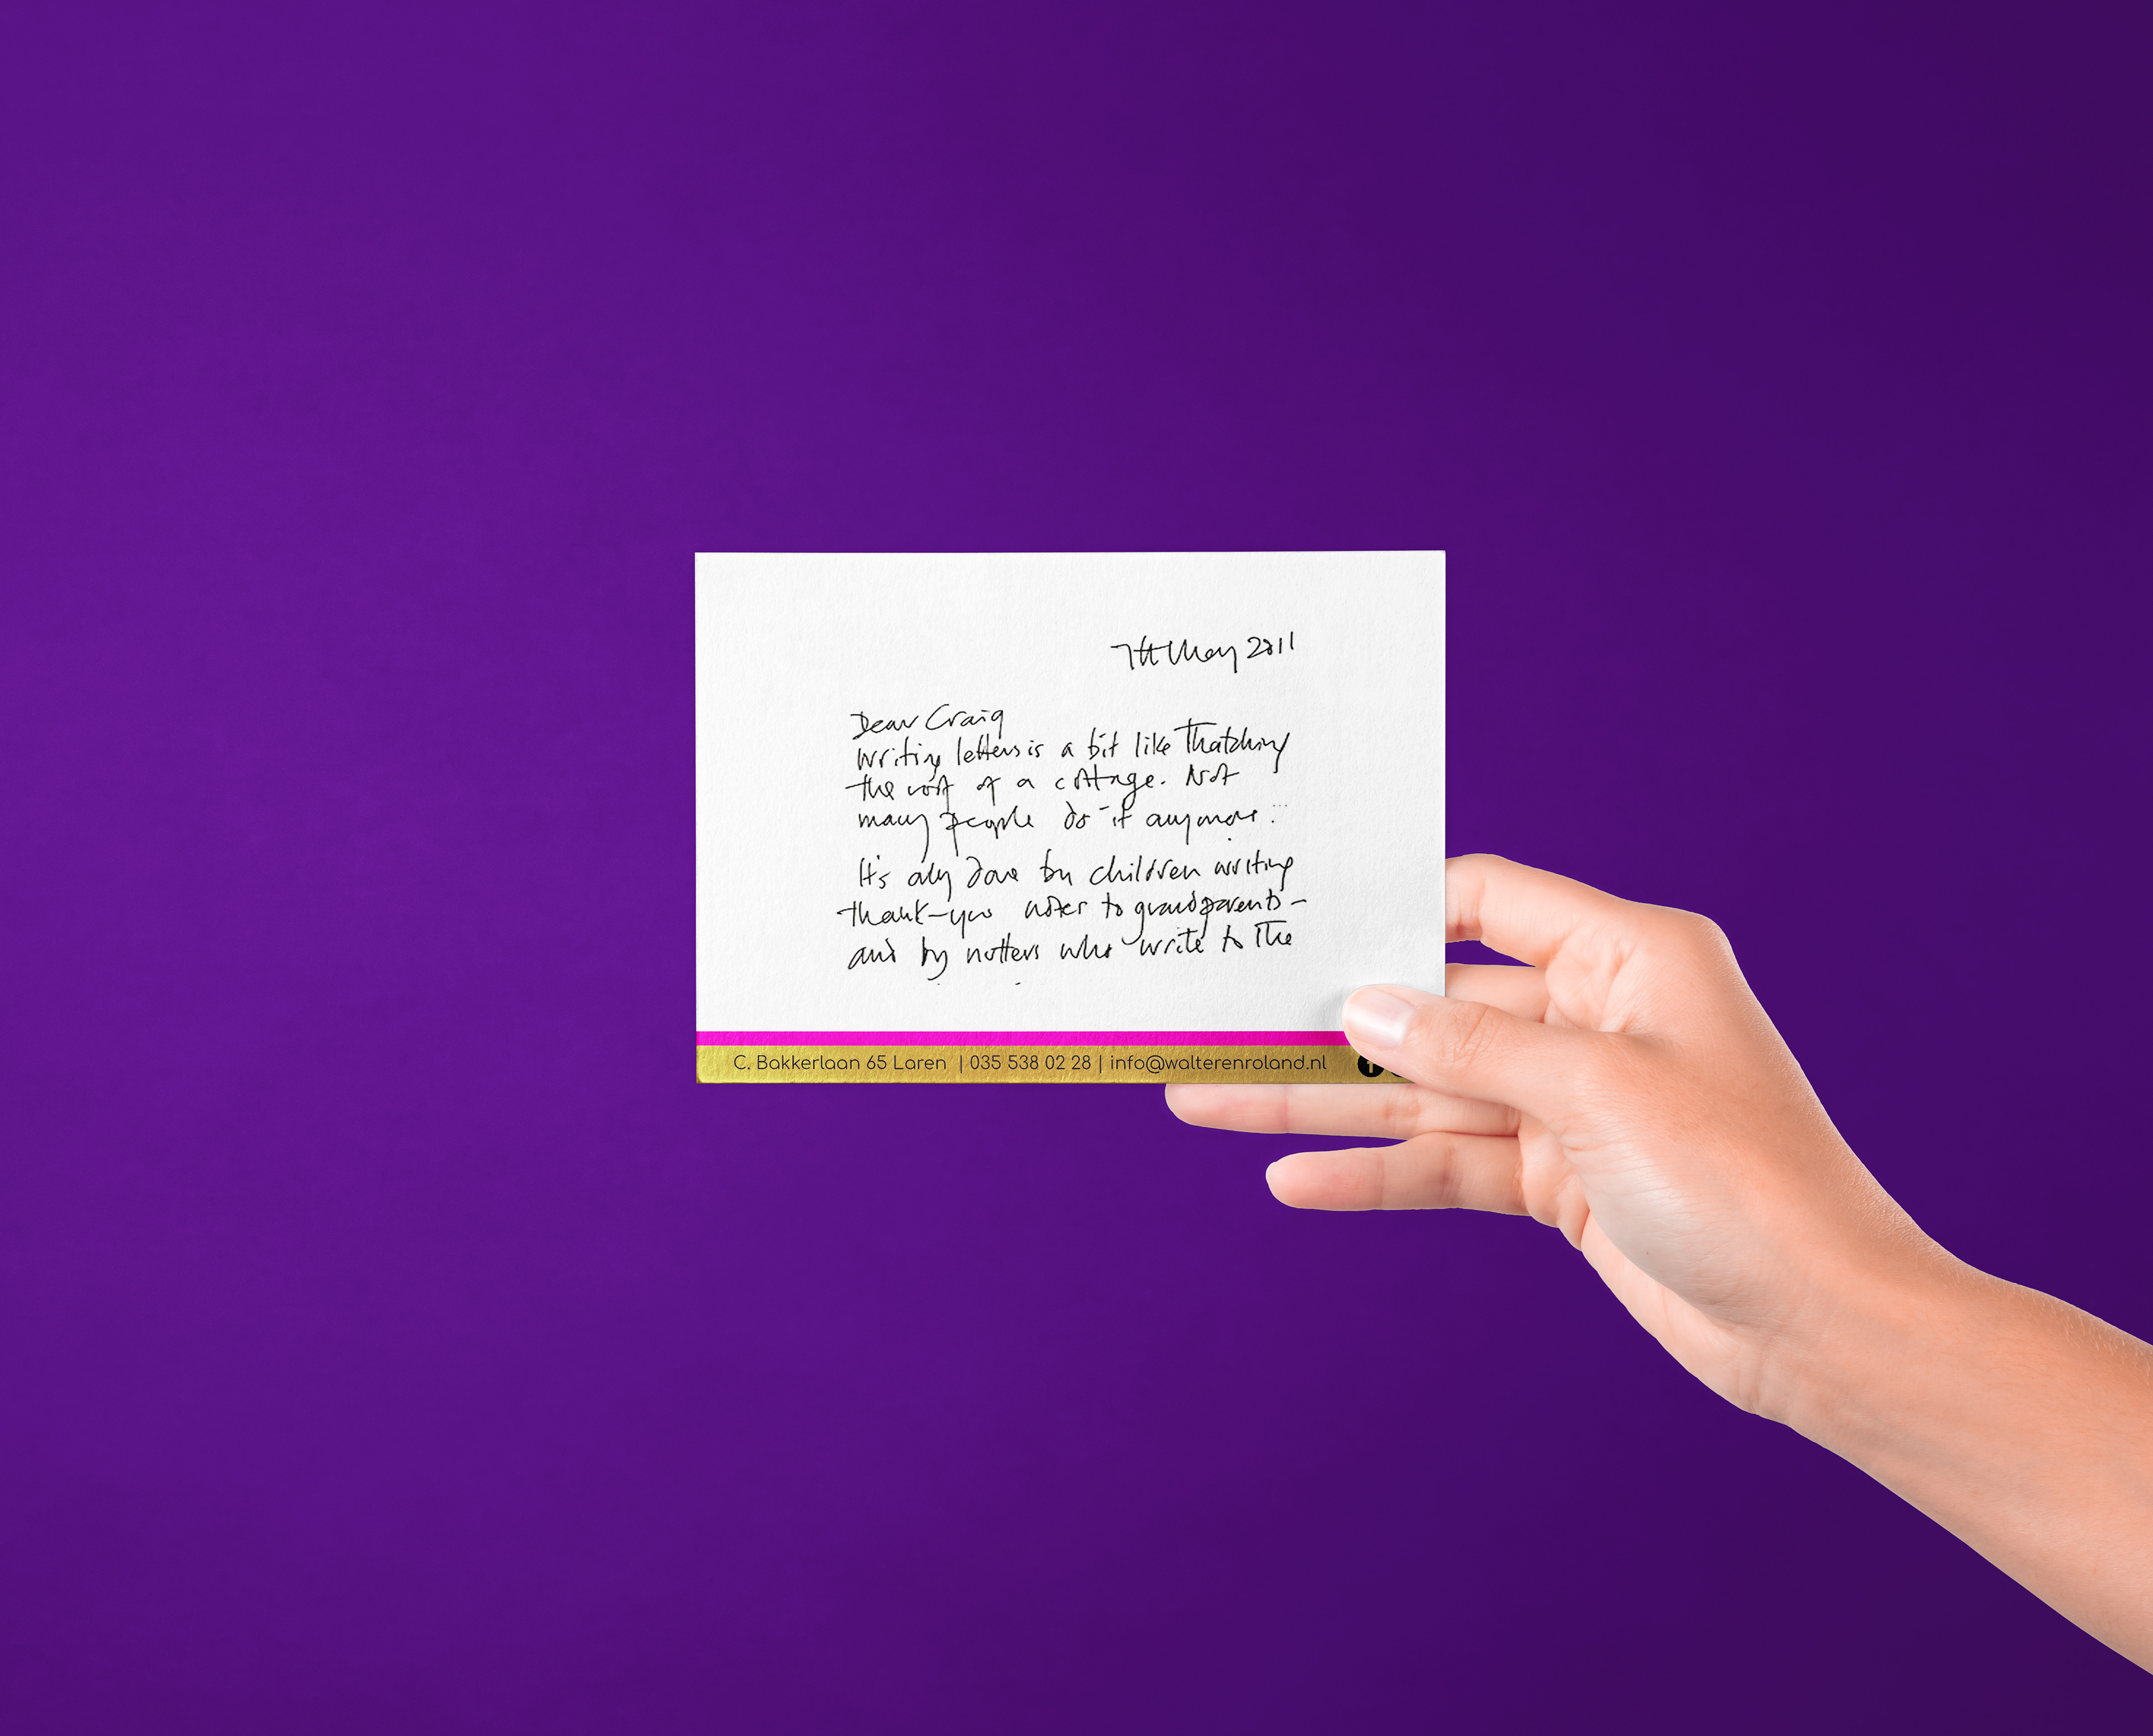 7th May 2011
Dear Craig
Writing letters is a bit like Thatching
the roof of a cottage. Not
many people do it anymore.
It's only done by children writing
thank-you notes to grandparents –
and by nutters who write to The
C. Bakkerlaan 65 Laren | 035 538 02 28 | info@walterenroland.nl